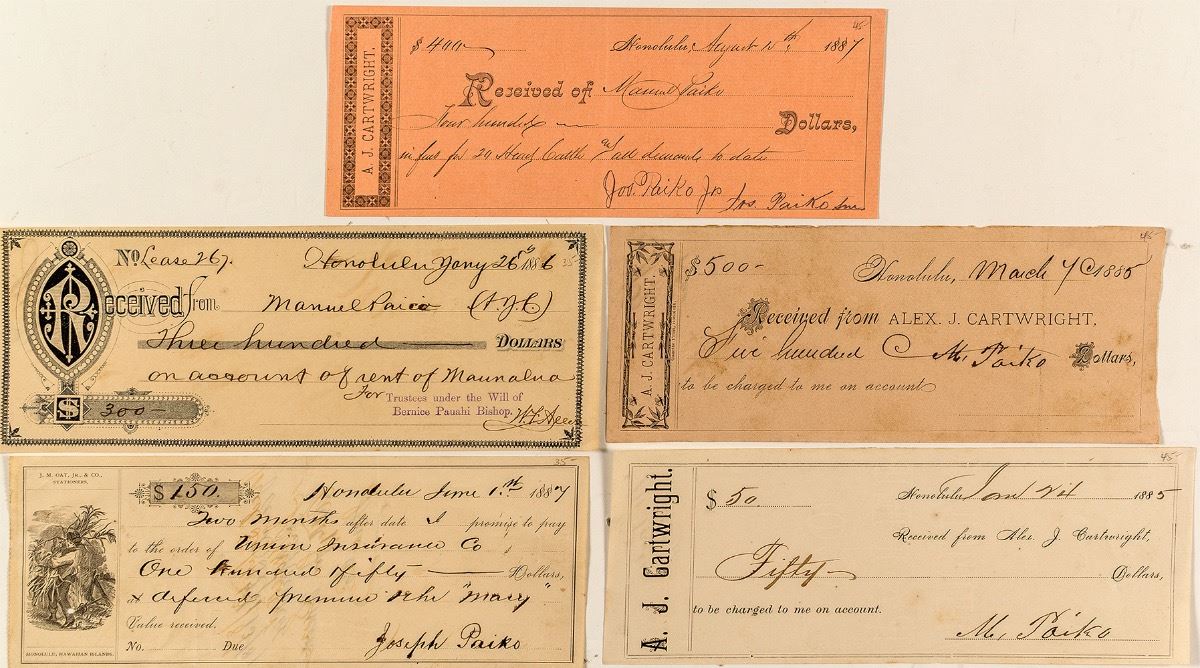 45-
A. J. CARTWRIGHT.
$ 400
Honolulu, August 12th, 1887
Received of Manuel Paiko
Four hundred Dollars,
in full for 20 Head Cattle & all demands to date
Jos. Paiko Jr
Jos. Paiko Snr
No. Lease 267.
Honolulu Jany 26th 1886
35-
Received from Manuel Paico (A.J.C)
Three hundred DOLLARS
on account of rent of Maunalua
For Trustees under the Will of
Bernice Pauahi Bishop.
$ 300-
45-
A. J. CARTWRIGHT.
$ 500-
Honolulu, March 7 1885
Received from ALEX. J. CARTWRIGHT,
Five hundred Dollars,
M. Paiko
to be charged to me on account
J. M. OAT, JR., & CO.,
STATIONERS,
HONOLULU, HAWAIIAN ISLANDS.
35-
$ 150.
Honolulu June 1st 1887
Two Months after date I promise to pay
to the order of Union Insurance Co
One hundred & fifty Dollars,
deferred premium "Mary"
Value received.
No. Due
Joseph Paiko
45-
A. J. Cartwright.
$ 50
Honolulu Jan 24 1885
Received from Alex. J. Cartwright,
Fifty Dollars,
to be charged to me on account.
M. Paiko